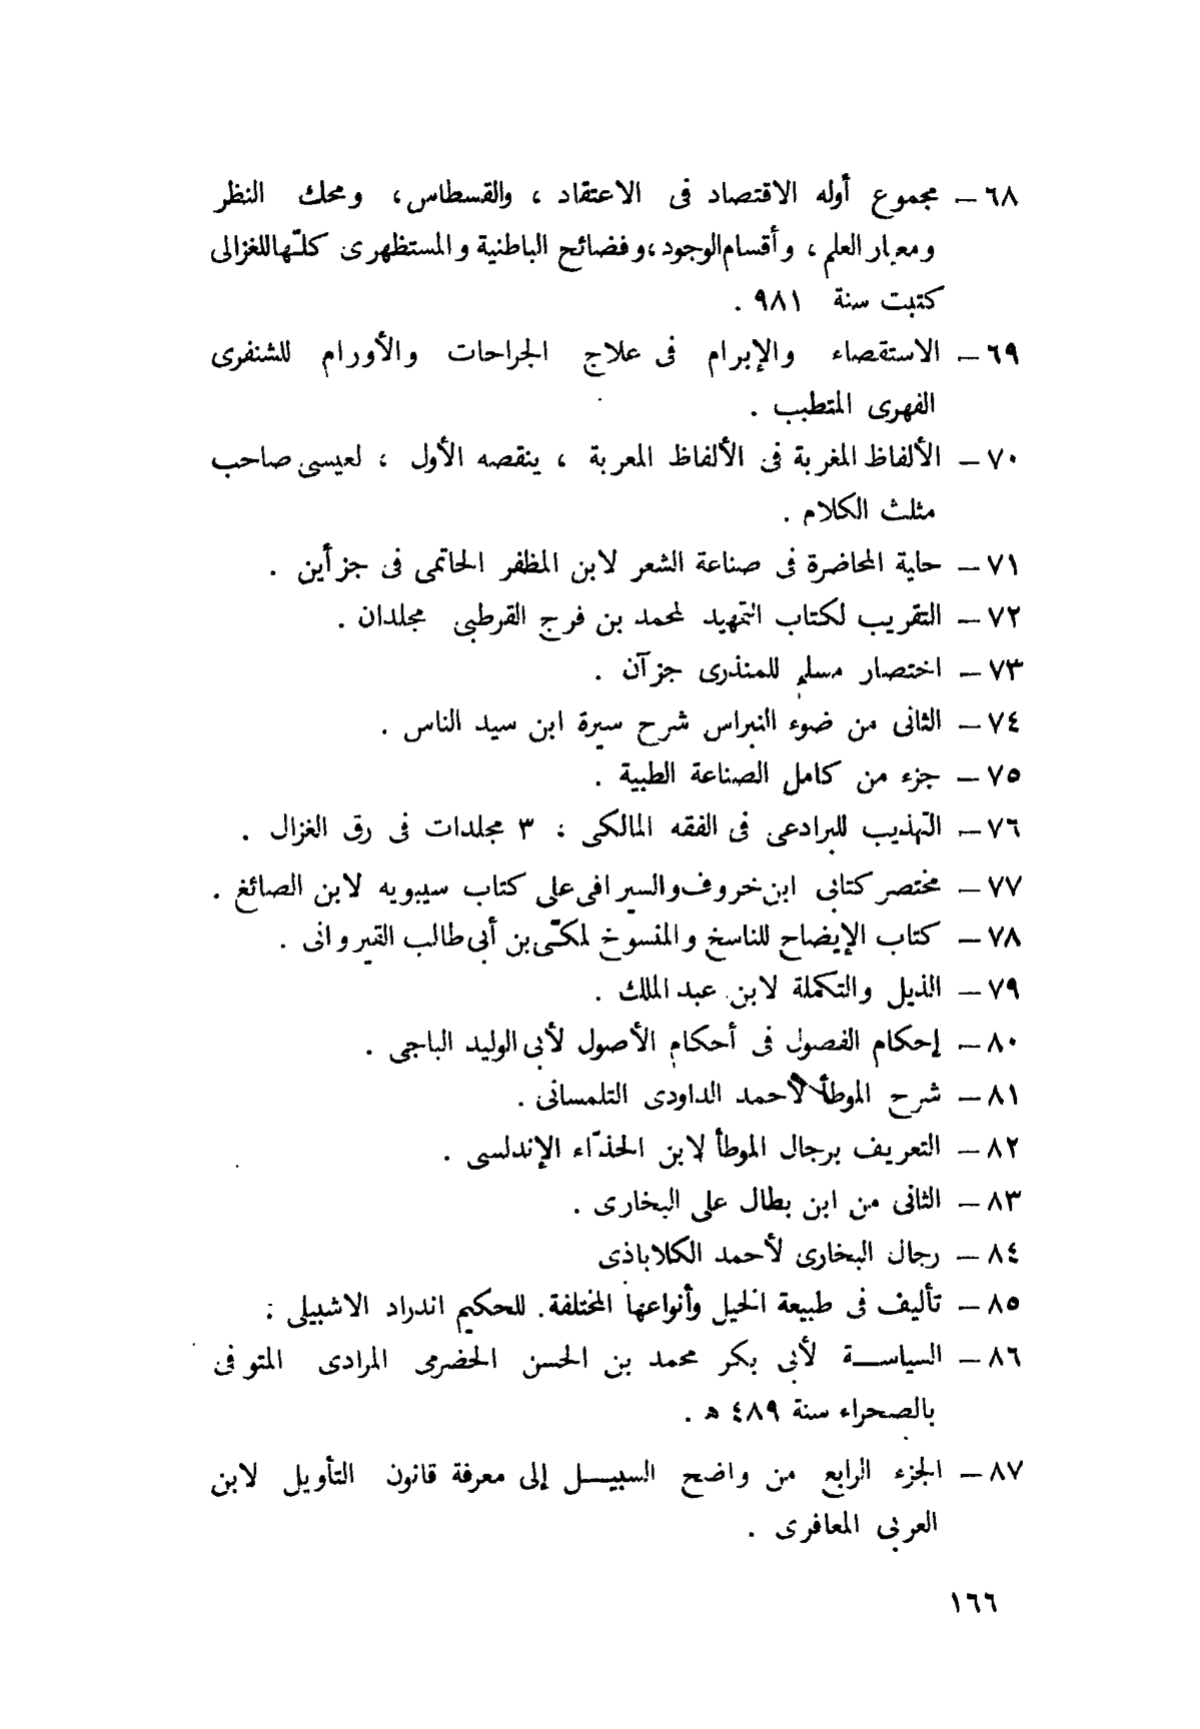 ٦٨ — مجموع أوله الاقتصاد فى الاعتقاد ، والقسطاس، ومحك النظر
ومعيار العلم ، وأقسام الوجود، وفضائح الباطنية والمستظهرى كلّها للغزالى
كتبت سنة ٩٨١ .
٦٩ — الاستقصاء والإبرام فى علاج الجراحات والأورام للشنفرى
الفهرى المتطبب .
٧٠ — الألفاظ المغربة فى الألفاظ المعربة ، ينقصه الأول ، لعيسى صاحب
مثلث الكلام .
٧١ — حلية المحاضرة فى صناعة الشعر لابن المظفر الحاتمى فى جزأين .
٧٢ — التقريب لكتاب التمهيد لمحمد بن فرج القرطبى مجلدان .
٧٣ — اختصار مسلم للمنذرى جزآن .
٧٤ — الثانى من ضوء النبراس شرح سيرة ابن سيد الناس .
٧٥ — جزء من كامل الصناعة الطبية .
٧٦ — التهذيب للبرادعى فى الفقه المالكى ، ٣ مجلدات فى رق الغزال .
٧٧ — مختصر كتابى ابن خروف والسيرافى على كتاب سيبويه لابن الصائغ .
٧٨ — كتاب الإيضاح للناسخ والمنسوخ لمكّى بن أبى طالب القيروانى .
٧٩ — الذيل والتكملة لابن عبد الملك .
٨٠ — إحكام الفصول فى أحكام الأصول لأبى الوليد الباجى .
٨١ — شرح الموطأ لأحمد الداودى التلمسانى .
٨٢ — التعريف برجال الموطأ لابن الحذّاء الإندلسى .
٨٣ — الثانى من ابن بطال على البخارى .
٨٤ — رجال البخارى لأحمد الكلاباذى
٨٥ — تأليف فى طبيعة الخيل وأنواعها المختلفة. للحكيم اندراد الاشبيلى .
٨٦ — السياسة لأبى بكر محمد بن الحسن الحضرمى المرادى المتوفى
بالصحراء سنة ٤٨٩ ھ .
٨٧ — الجزء الرابع من واضح السبيل إلى معرفة قانون التأويل لابن
العربى المعافرى .
١٦٦